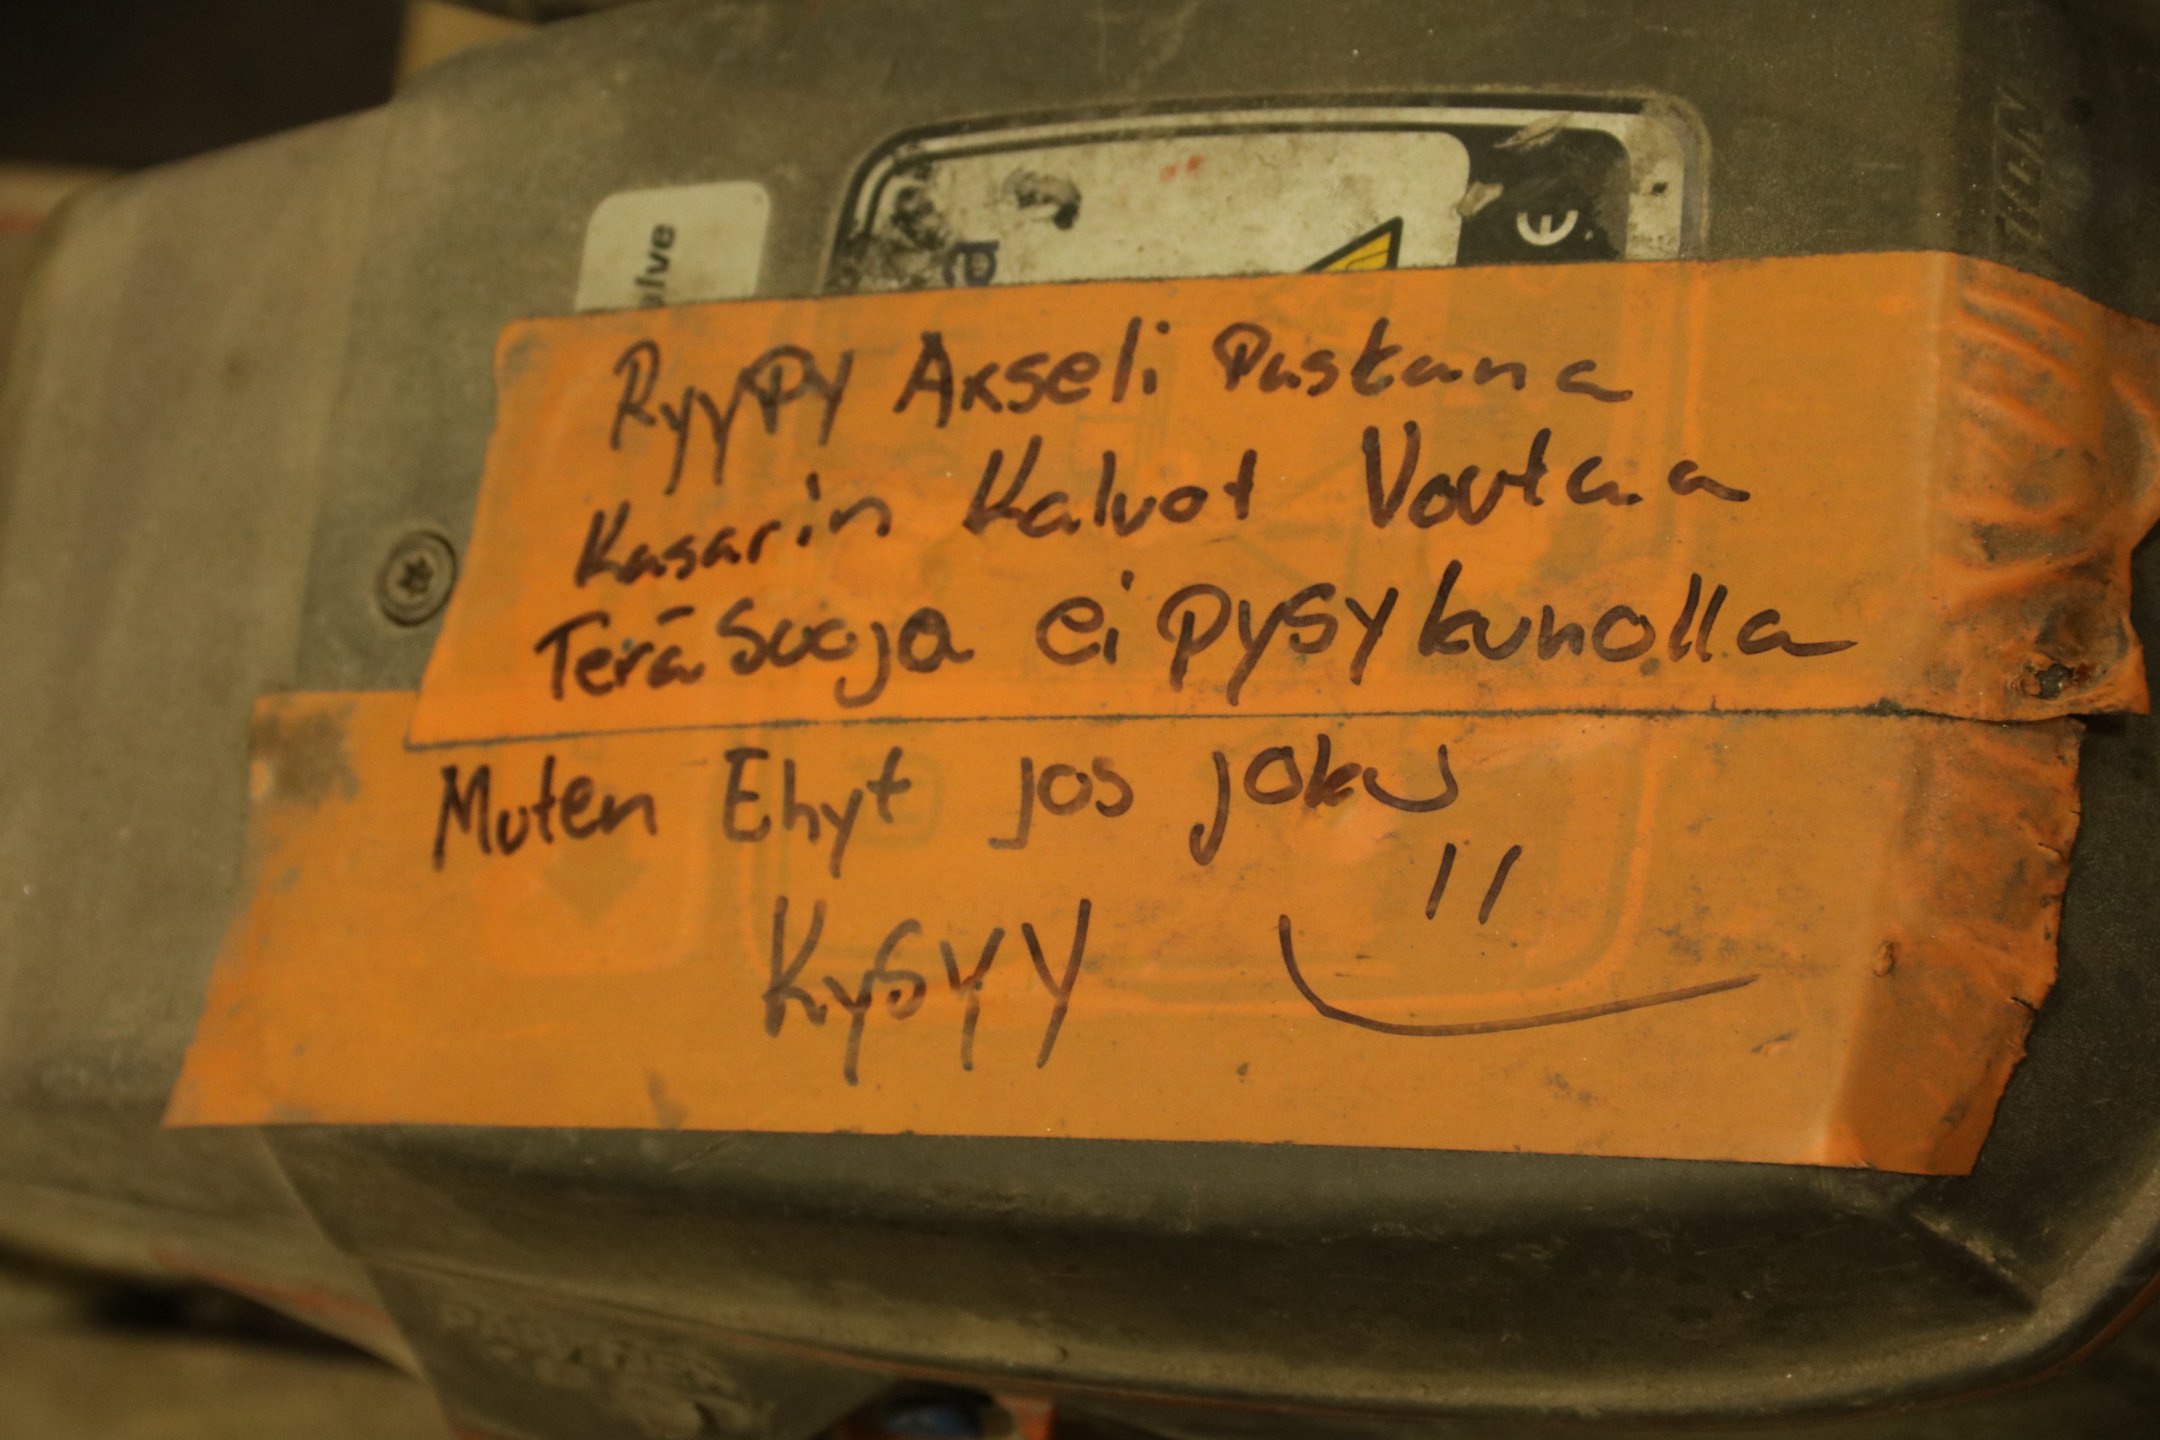 lve
a
CE
RyyPy Axseli Paskana
Kasarin Kalvot Vovtaa
Teräsuoja ei pysy kunolla
Muten Ehyt jos joku
Kysyy